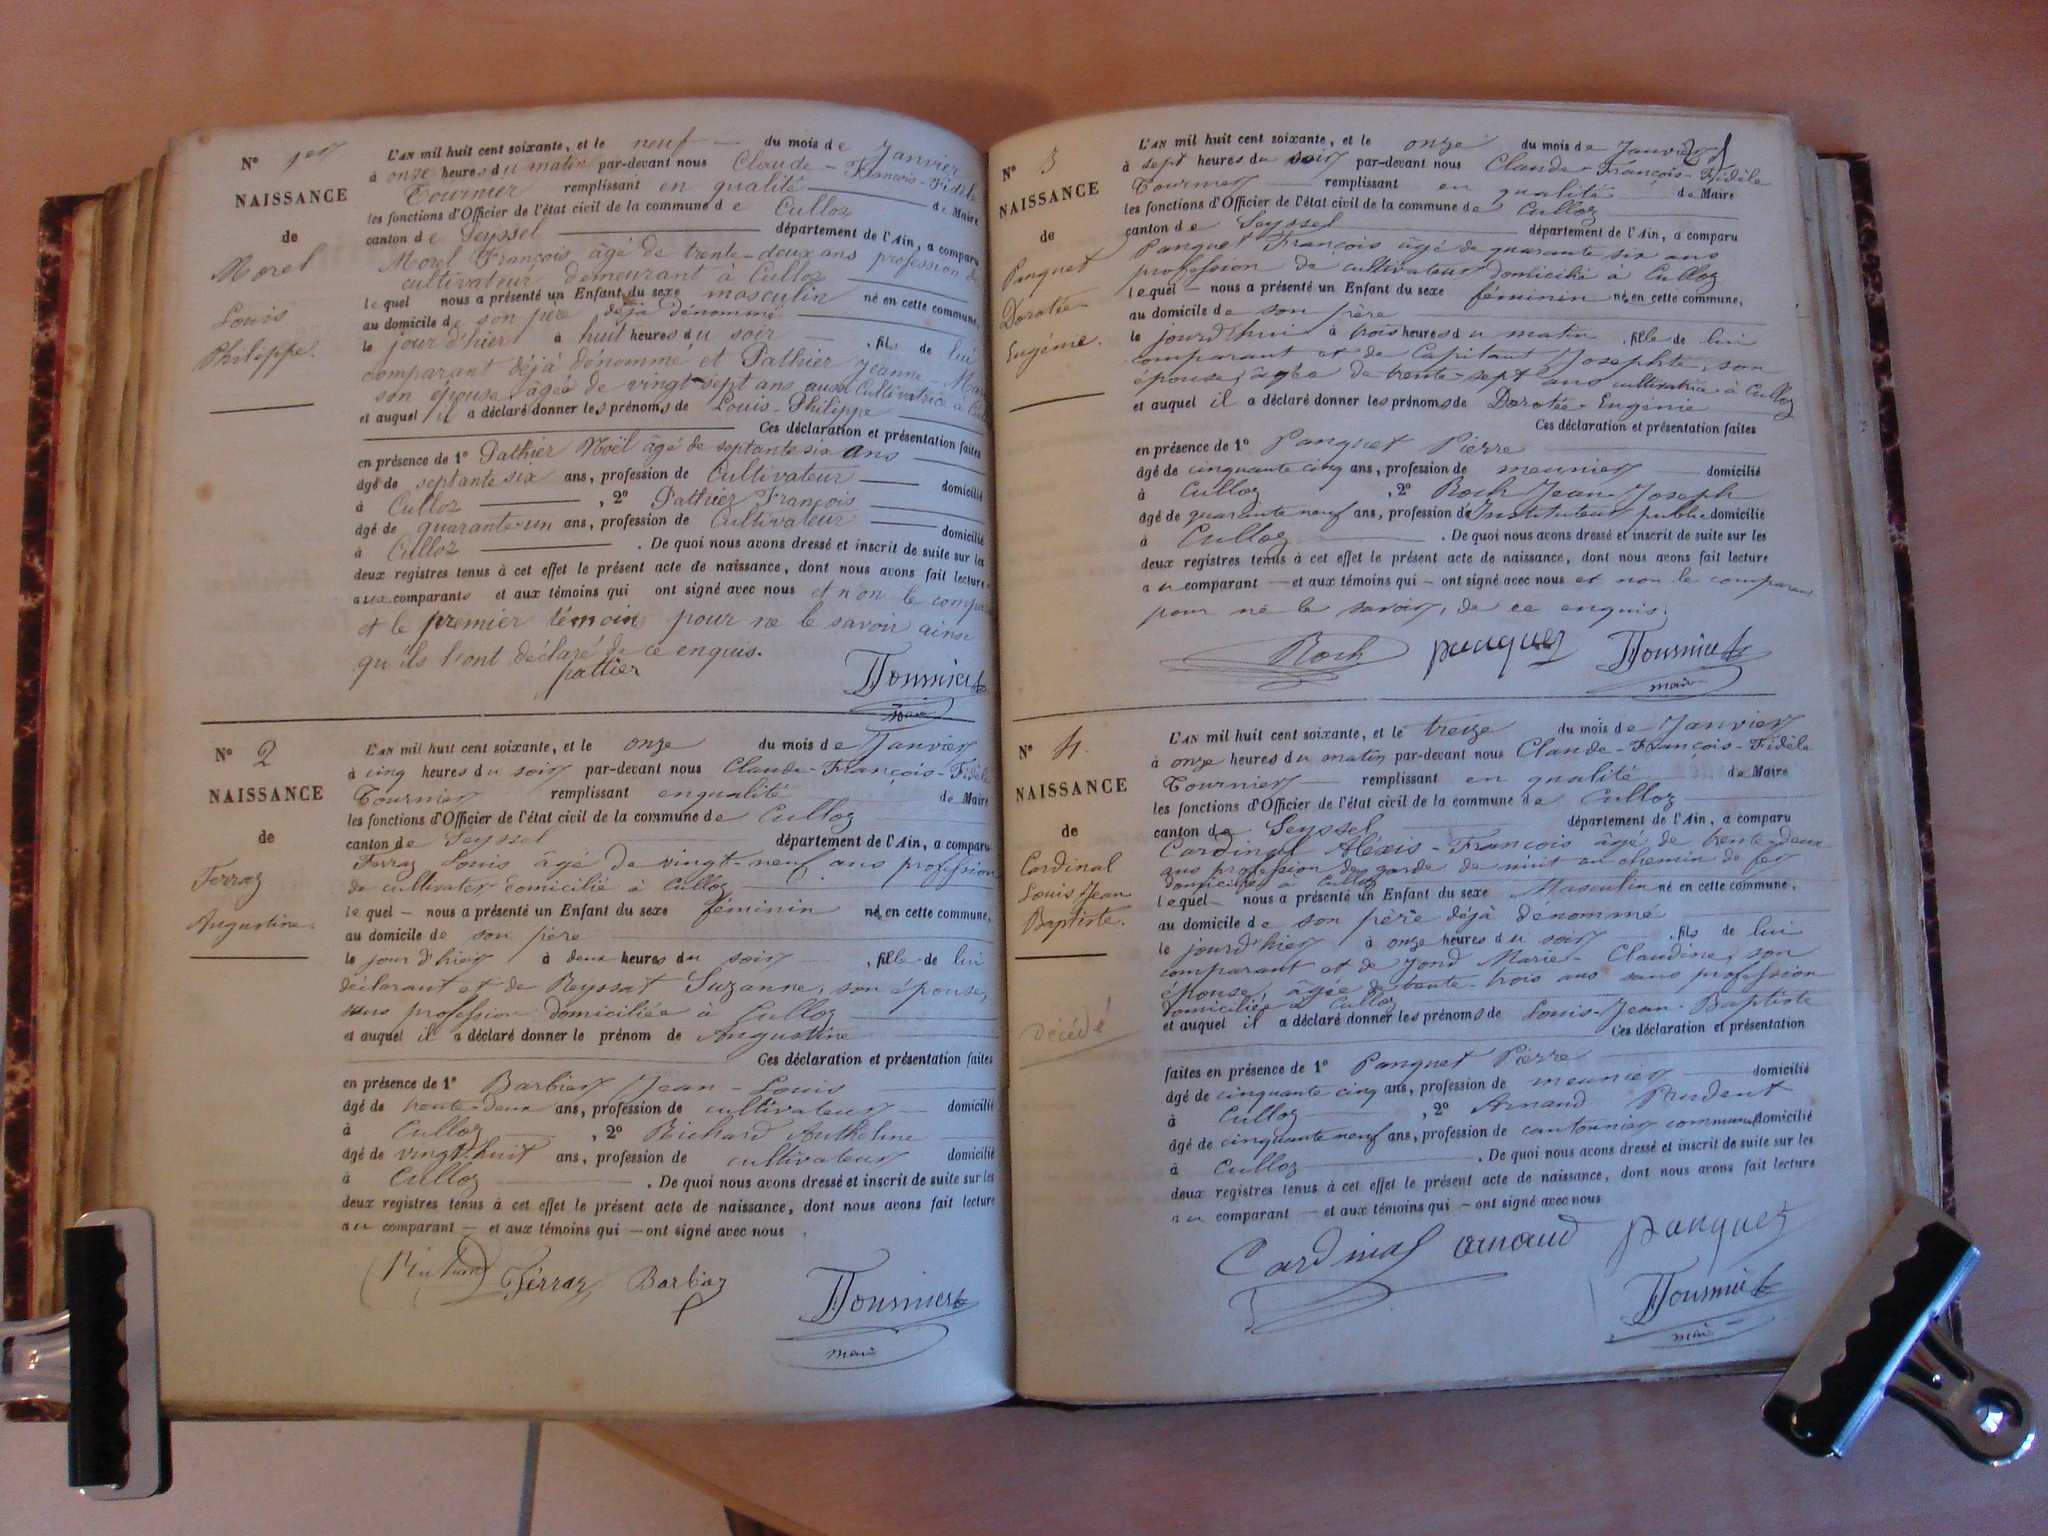 N° 1er
NAISSANCE
de
Morel
Louis
Philippe.
L'AN mil huit cent soixante, et le neuf du mois de Janvier
à onze heures du matin par-devant nous Claude-François-Fidèle
Tournier remplissant en qualité de Maire
les fonctions d'Officier de l'état civil de la commune de Culloz
canton de Seyssel département de l'Ain, a comparu
Morel François âgé de trente-deux ans profession de
cultivateur demeurant à Culloz
lequel nous a présenté un Enfant du sexe masculin né en cette commune,
au domicile de son père déjà dénommé
le jour d'hier à huit heures du soir, fils de lui
comparant déjà dénommé et Pathier Jeanne-
son épouse âgée de vingt-sept ans aussi Cultivatrice à
et auquel il a déclaré donner les prénoms de Louis-Philippe
Ces déclaration et présentation faites
en présence de 1° Pathier Noël âgé de septante six ans
âgé de septante six ans, profession de Cultivateur domicilié
à Culloz, 2° Pathier François
âgé de quarante-un ans, profession de Cultivateur domicilié
à Culloz. De quoi nous avons dressé et inscrit de suite sur les
deux registres tenus à cet effet le présent acte de naissance, dont nous avons fait lecture
aux comparants et aux témoins qui ont signé avec nous et non le
et le premier témoin pour ne le savoir ainsi
qu'ils l'ont déclaré de ce enquis.
pattier Tournier
maire
N° 2
NAISSANCE
de
Ferraz
Augustine.
L'AN mil huit cent soixante, et le onze du mois de Janvier
à cinq heures du soir par-devant nous Claude-François-Fidèle
Tournier remplissant en qualité de Maire
les fonctions d'Officier de l'état civil de la commune de Culloz
canton de Seyssel département de l'Ain, a comparu
Ferraz Louis âgé de vingt-neuf ans profession
de cultivater domicilié à Culloz
lequel – nous a présenté un Enfant du sexe féminin né en cette commune,
au domicile de son père
le jour d'hier à deux heures du soir, fille de lui
déclarant et de Reyssat Suzanne, son épouse,
sans profession domiciliée à Culloz
et auquel il a déclaré donner le prénom de Augustine
Ces déclaration et présentation faites
en présence de 1° Barbier Jean-Louis
âgé de trente-deux ans, profession de cultivateur domicilié
à Culloz, 2° Richard Anthelme
âgé de vingt-huit ans, profession de cultivateur domicilié
à Culloz. De quoi nous avons dressé et inscrit de suite sur les
deux registres tenus à cet effet le présent acte de naissance, dont nous avons fait lecture
au comparant – et aux témoins qui – ont signé avec nous.
Richard Ferraz Barbier Tournier
maire
N° 3
NAISSANCE
de
Panguet
Dorotée
Eugénie.
L'AN mil huit cent soixante, et le onze du mois de Janvier
à sept heures du soir par-devant nous Claude-François-Fidèle
Tournier remplissant en qualité de Maire
les fonctions d'Officier de l'état civil de la commune de Culloz
canton de Seyssel département de l'Ain, a comparu
Panguet François âgé de quarante six ans
profession de cultivateur domicilié à Culloz
lequel – nous a présenté un Enfant du sexe féminin né en cette commune,
au domicile de son père
le jourd'hui à trois heures du matin, fille de lui
comparant et de Capitant Josephte, son
épouse, âgée de trente-sept ans cultivatrice à Culloz
et auquel il a déclaré donner les prénoms de Dorotée-Eugénie
Ces déclaration et présentation faites
en présence de 1° Panguet Pierre
âgé de cinquante cinq ans, profession de meunier domicilié
à Culloz, 2° Roch Jean-Joseph
âgé de quarante neuf ans, profession de Instituteur public domicilié
à Culloz. De quoi nous avons dressé et inscrit de suite sur les
deux registres tenus à cet effet le présent acte de naissance, dont nous avons fait lecture
au comparant – et aux témoins qui – ont signé avec nous et non le comparant
pour ne le savoir, de ce enquis.
Roch panguez Tournier
maire
N° 4.
NAISSANCE
de
Cardinal
Louis Jean
Baptiste.
Décédé
L'AN mil huit cent soixante, et le treize du mois de Janvier
à onze heures du matin par-devant nous Claude-François-Fidèle
Tournier remplissant en qualité de Maire
les fonctions d'Officier de l'état civil de la commune de Culloz
canton de Seyssel département de l'Ain, a comparu
Cardinal Alexis-François âgé de trente-deux
ans profession de garde de nuit au chemin de fer
domicilié à Culloz
lequel – nous a présenté un Enfant du sexe Masculin né en cette commune,
au domicile de son père déjà dénommé
le jourd'hier à onze heures du soir, fils de lui
comparant et de Jond Marie-Claudine, son
épouse, âgée de trente-trois ans sans profession
domiciliée à Culloz
et auquel il a déclaré donner les prénoms de Louis-Jean-Baptiste
Ces déclaration et présentation
faites en présence de 1° Panguet Pierre
âgé de cinquante cinq ans, profession de meunier domicilié
à Culloz, 2° Arnaud Prudent
âgé de cinquante neuf ans, profession de cantonnier communal domicilié
à Culloz. De quoi nous avons dressé et inscrit de suite sur les
deux registres tenus à cet effet le présent acte de naissance, dont nous avons fait lecture
au comparant – et aux témoins qui – ont signé avec nous
Cardinal arnaud panguez
Tournier
maire